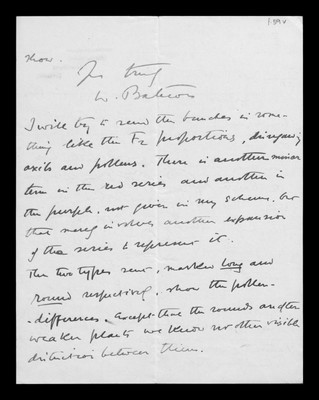 now.
Yrs truly
W. Bateson
I will try to send the bunches in some-
thing like the F2 proportions, disregarding
axils and pollens. There is another minor
term in the red series and another in
the purple, not given in my scheme, but
that merely involves another expansion
of the series to represent it.
The two types sent, marked long and
round respectively, show the pollen-
-differences. Except that the rounds are often
weaker plants we know no other visible
distinction between them.